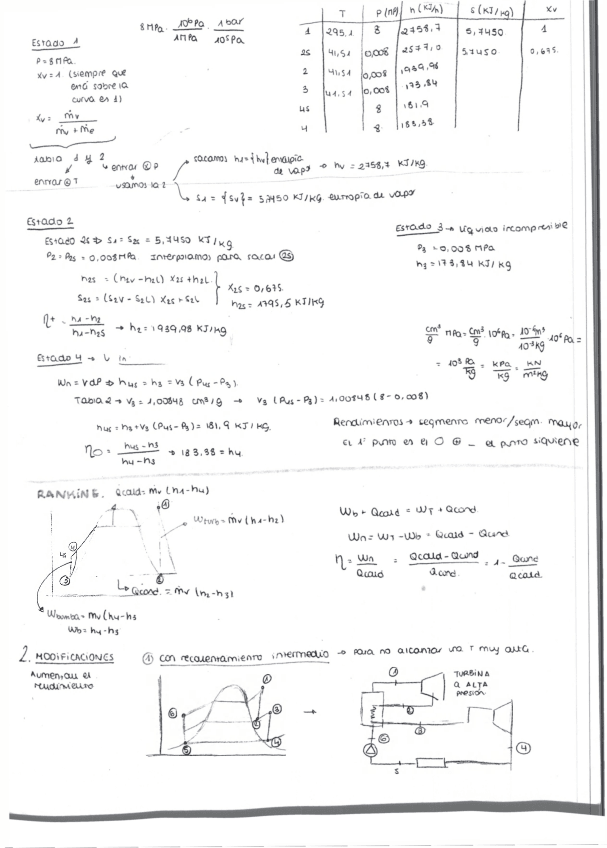 8 MPa · 10⁶ Pa / 1 MPa · 1 bar / 10⁵ Pa
T P (MPa) h (KJ/h) s (KJ/kg) Xv
1 295,1 8 2758,7 5,7450 1
2s 41,51 0,008 2577,0 5.7450 0,675.
2 41,51 0,008 1939,98
3 41.51 0,008 173,84
4s 8 181,9
4 8 183,38
Estado 1
P=8MPa.
Xv=1. (siempre que
está sobre la
curva es 1)
Xv = ṁv / ṁv + ṁe
tabla 1 y 2
entrar @ T
entrar @ P
usamos la 2
sacamos h1 = {hv} entalpia de vapor → hv = 2758,7 KJ/Kg.
s1 = {sv} = 5,7450 KJ/Kg. entropia de vapor
Estado 2
Estado 2s → s1 = s2s = 5,7450 KJ/kg
P2 = P2s = 0,008 MPa Interpolamos para sacar (2s)
h2s = (h2v - h2L) X2s + h2L
s2s = (s2v - s2L) X2s + s2L
X2s = 0,675.
h2s = 1795,5 KJ/Kg
η+ = h1-h2 / h1-h2s → h2 = 1939,98 KJ/Kg
Estado 3 → Líquido incompresible
P3 = 0,008 MPa
h3 = 173,84 KJ/Kg
cm³/g MPa = cm³/g · 10⁶ Pa = 10⁻⁶ m³ / 10⁻³ kg 10⁶ Pa =
= 10³ Pa / kg = KPa / kg = KN / m² kg
Estado 4 →
Wn = vdP → h4s = h3 = v3 (P4s - P3).
Tabla 2 → v3 = 1,00848 cm³/g → v3 (P4s - P3) = 1,00848 (8 - 0,008)
h4s = h3 + v3 (P4s - P3) = 181,9 KJ/Kg.
ηD = h4s - h3 / h4 - h3 → 183.38 = h4.
Rendimientos → segmento menor/segm. mayor
El 1º punto es el
el punto siguiente
RANKINE. Qcald = ṁv (h1-h4)
Wturb = ṁv (h1-h2)
4s
4
3
1
2
Qcond. = ṁv (h2-h3)
Wbomba = ṁv (h4-h3
Wb = h4-h3
Wb + Qcald = WT + Qcond
Wn = WT - Wb = Qcald - Qcond
η = Wn / Qcald = Qcald - Qcond / Qcond. = 1 - Qcond / Qcald.
2. MODIFICACIONES
Aumentan el
rendimiento
① con recalentamiento intermedio → para no alcanzar una T muy alta.
1
2
3
4
5
6
TURBINA
A ALTA
PRESIÓN
1
2
3
4
5
6